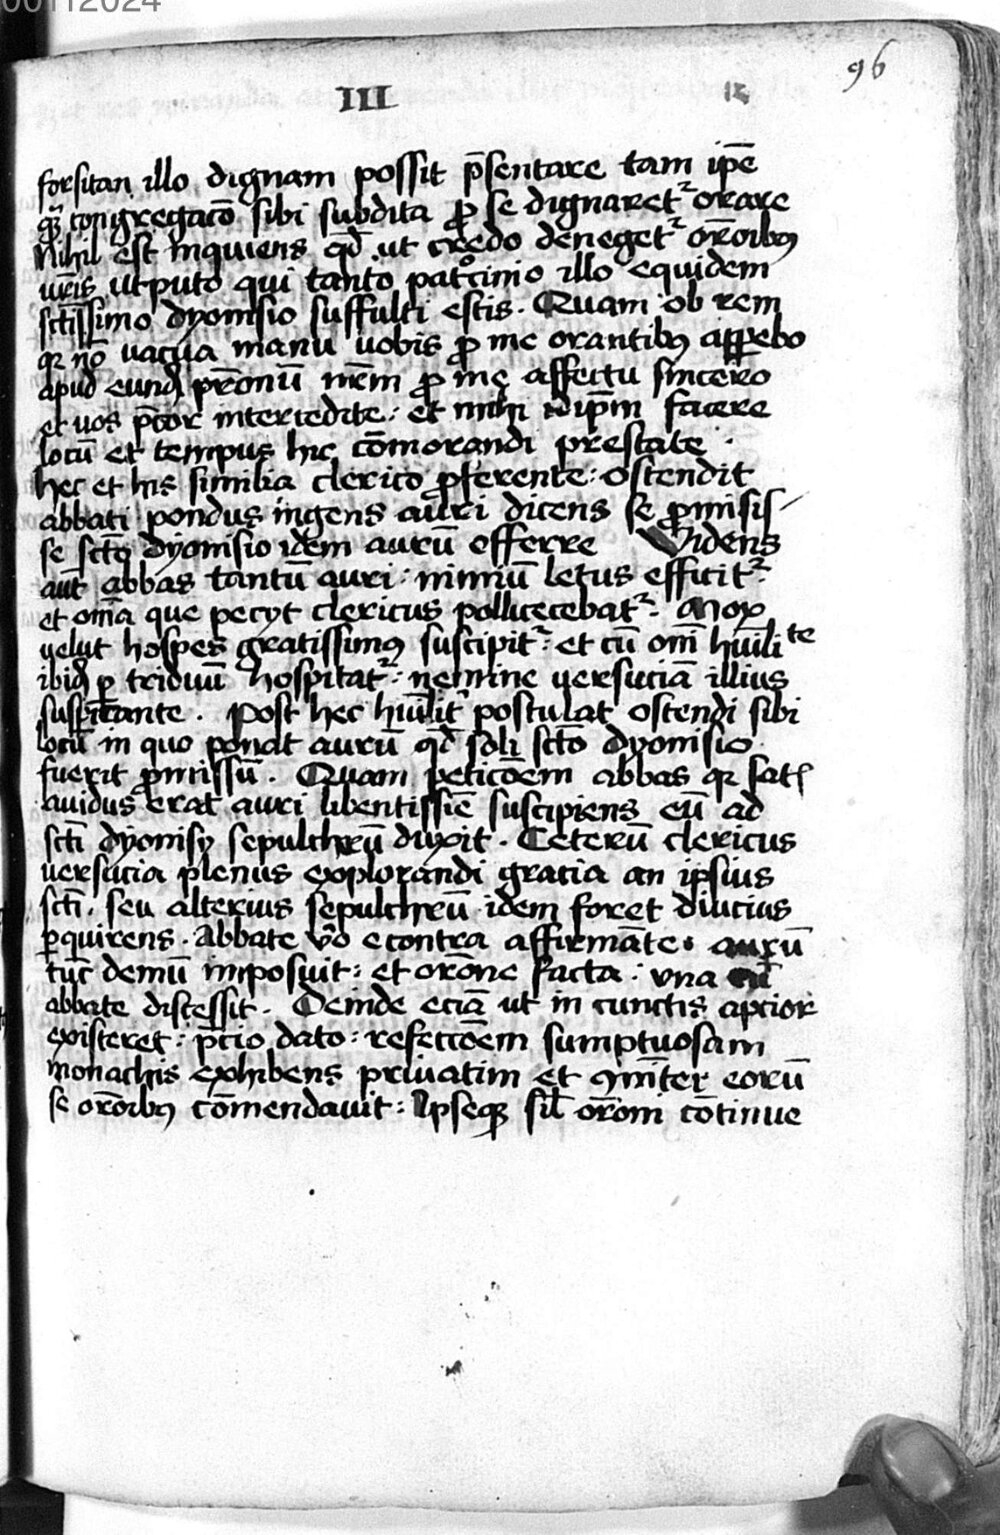 00112024
96
III
12
forsitan illo dignam possit p̄sentare tam ip̄e
q̄ʒ congregac̄o sibi subdita ꝓ se dignaret᷑ orare
Nihil est inquiens qd̄ ut credo deneget᷑ or̄oibꝰ
ur̄is utputo qui tanto pat̊cinio illo equidem
sct̄issimo dyonisio suffulti estis. Quam ob rem
qr nō vacua manu uobis ꝓ me orantibꝰ apꝑebo
apud eundꝫ pr̄onū nr̄m ꝓ me affectu sincero
et uos p̄cor intercedite: et mihi idip̄m facere
locū et tempus hic cōmorandi prestate.
hec et his similia clerico ꝓferente: ostendit
abbati pondus ingens auri dicens se ꝓmisis/
se sct̄o dyonisio idem aurū offerre Videns
aut̄ abbas tantū auri: nimiū letus efficit᷑.
et om̄ia que pecyt clericus pollicecebat᷑. Mox
uelut hospes gratissimꝰ suscipit᷑: et cū om̄i hūilite
ibidꝫ ꝑ triduū hospitat᷑: nemine uersuciā illius
suspicante. Post hec hūilit̄ postulat ostendi sibi
locū in quo ponat aurū qd̄ sct̄o dyonisio
fuerit ꝓmissū. Quam peticōem abbas qr satꝭ
auidus erat auri libentissīe suscipiens eū ad
sct̄i dyonisy sepulchrū duxit. Ceterū clericus
uersucia plenus explorandi gracia an ipsius
sct̄i. seu alterius sepulchrū idem foret diucius
ꝑquirens. Abbate v̊o econtra affirmāte. aurū
tūc demū imposuit: et orōne facta: vna cū
abbate discessit. Deinde eciā ut in cunctis apcior
existeret: p̄cio dato: refeccōem sumptuosam
monachis exhibens priuatim et ꝯmūiter eorū
se or̄oibꝰ cōmendauit: Ipseqꝫ sil̄ or̄oni cōtinue